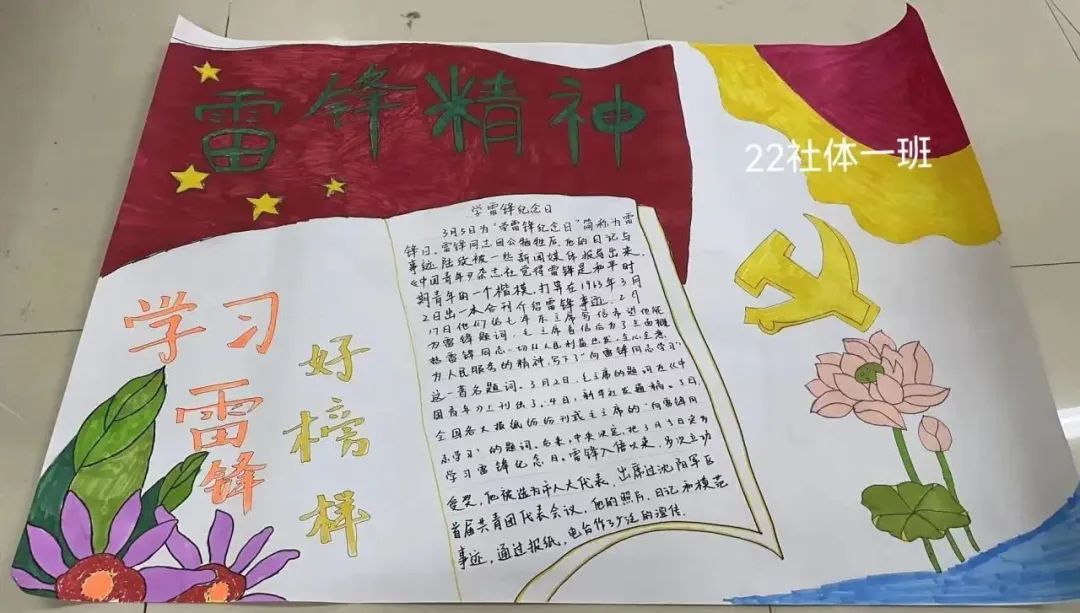 雷锋精神
22社体一班
学习
雷锋
好榜样
学雷锋纪念日
3月5日为“学雷锋纪念日”简称为雷
锋日。雷锋同志因公牺牲后,他的日记与
事迹陆续被一些新闻媒体报导出来,
《中国青年》杂志社觉得雷锋是和平时
期青年的一个楷模,打算在1963年3月
2日出一本合刊介绍雷锋事迹,2月
17日他们给毛泽东主席写信希望他能
为雷锋题词,毛主席看信后为了全面概
括雷锋同志一切从人民利益出发,全心全意
为人民服务的精神,写下了“向雷锋同志学习”
这一著名题词。3月2日,毛主席的题词在《中
国青年》上刊出了。4日,新华社发通稿。5日,
全国各大报纸纷纷刊式毛主席的“向雷锋同
志学习”的题词。后来,中央决定,把3月5日定为
学习雷锋纪念日。雷锋入伍以来,多次立功
受奖,他被选为市人大代表,出席过沈阳军区
首届共青团代表会议,他的照片、日记和模范
事迹,通过报纸,电台作了广泛的宣传.